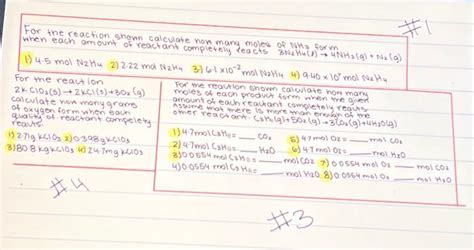 #1
For the reaction shown calculate how many moles of NH3 form
when each amount of reactant completely reacts 3N2H4(l) → 4NH3(g) + N2(g)
1) 4.5 mol N2H4 2) 2.22 mol N2H4 3) 6.1x10⁻² mol N2H4 4) 9.40 x 10¹ mol N2H4
For the reaction
2KClO3(s) → 2KCl(s) + 3O2(g)
calculate how many grams
of oxygen form when each
quality of reactant completely
reacts.
1) 2.71g KClO3 2) 0.398g KClO3
3) 80.8 kg KClO3 4) 24.7mg KClO3
#4
For the reaction shown calculate how many
moles of each product form when the given
amount of each reactant completely reacts.
Assume that there is more than enough of the
other reactant. C3H8(g) + 5O2(g) → 3CO2(g) + 4H2O(g)
1) 4.7mol C3H8 = ___ CO2
2) 4.7mol C3H8 = ___ H2O
3) 0.0554 mol C3H8 = ___ mol CO2
4) 0.0554 mol C3H8 = ___ mol H2O
5) 4.7mol O2 = ___ mol CO2
6) 4.7mol O2 = ___ mol H2O
7) 0.0554 mol O2 ___ mol CO2
8) 0.0554 mol O2 ___ mol H2O
#3